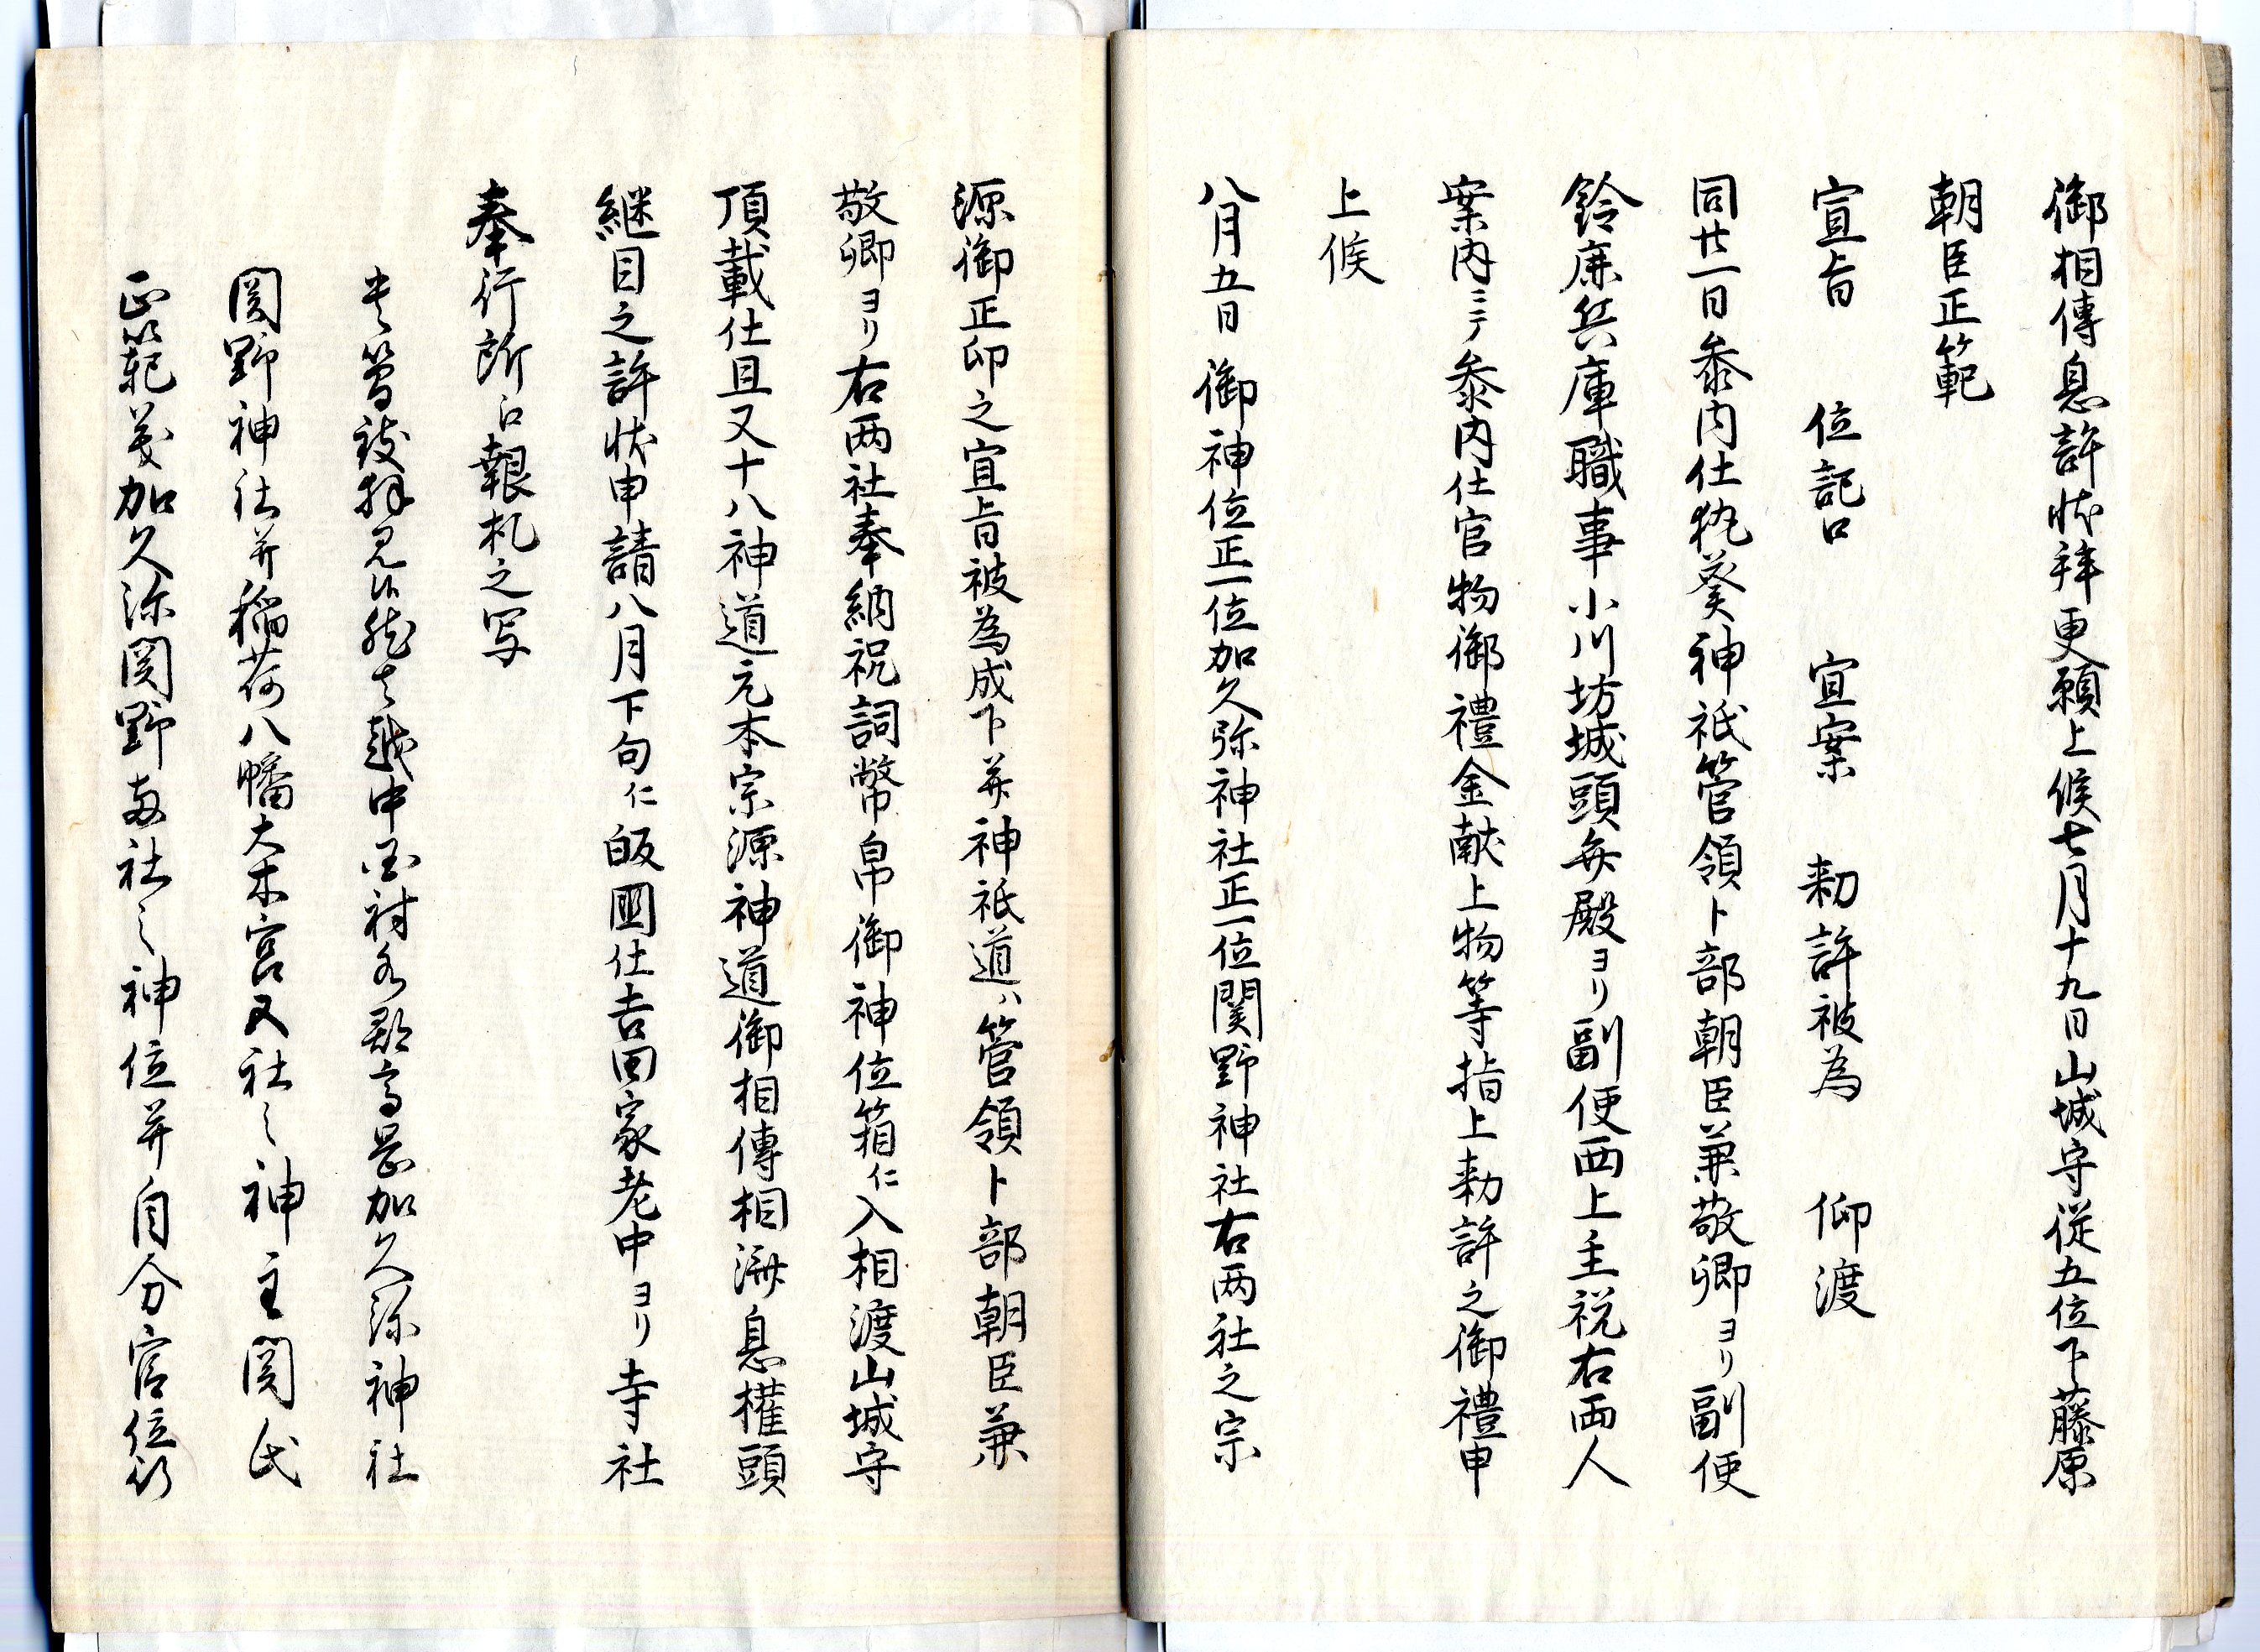 御相傳息許状拜更願上候七月十九日山城守従五位下藤原
朝臣正範
宣旨　位記口　宣案　勅許被為　仰渡
同廿一日参内仕執奏神祇管領卜部朝臣兼敬卿ヨリ副使
鈴鹿兵庫職事小川坊城頭弁殿ヨリ副使西上主税右両人
案内ニテ参内仕官物御禮金献上物等指上勅許之御禮申
上候
八月五日御神位正一位加久弥神社正一位関野神社右两社之宗
源御正印之宣旨被為成下并神祇道ハ管領卜部朝臣兼
敬卿ヨリ右两社奉納祝詞幣帛御神位箱仁入相渡山城守
頂載仕且又十八神道元本宗源神道御相傳相濟息権頭
継目之許状申請八月下旬仁皈國仕吉田家老中ヨリ寺社
奉行所江報札之写
一筆致拝見候然者越中国射水郡高岡加久弥神社
関野神社并稲荷八幡大木宮又社之神主関氏
正範義加久弥関野両社之神位并自分官位